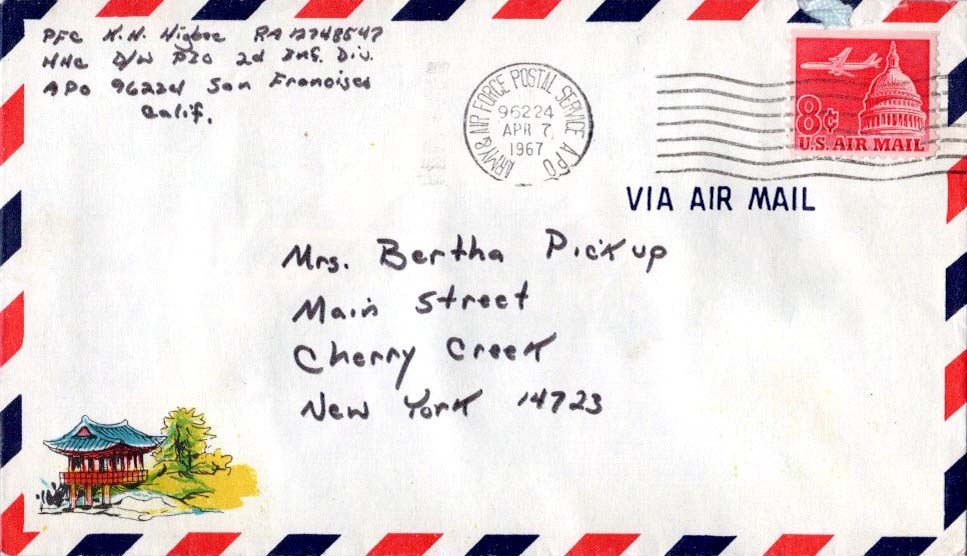 PFC K.N. Higbee RA12748547
HHC D/W PIO 2d Inf. Div.
APO 96224 San Francisco
Calif.
ARMY & AIR FORCE POSTAL SERVICE APO
96224
APR 7
1967
8¢
U.S. AIR MAIL
VIA AIR MAIL
Mrs. Bertha Pickup
Main Street
Cherry Creek
New York 14723